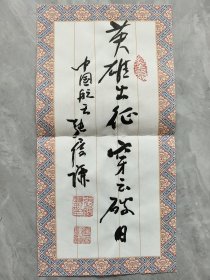 英雄出征穿云破日
中国航天